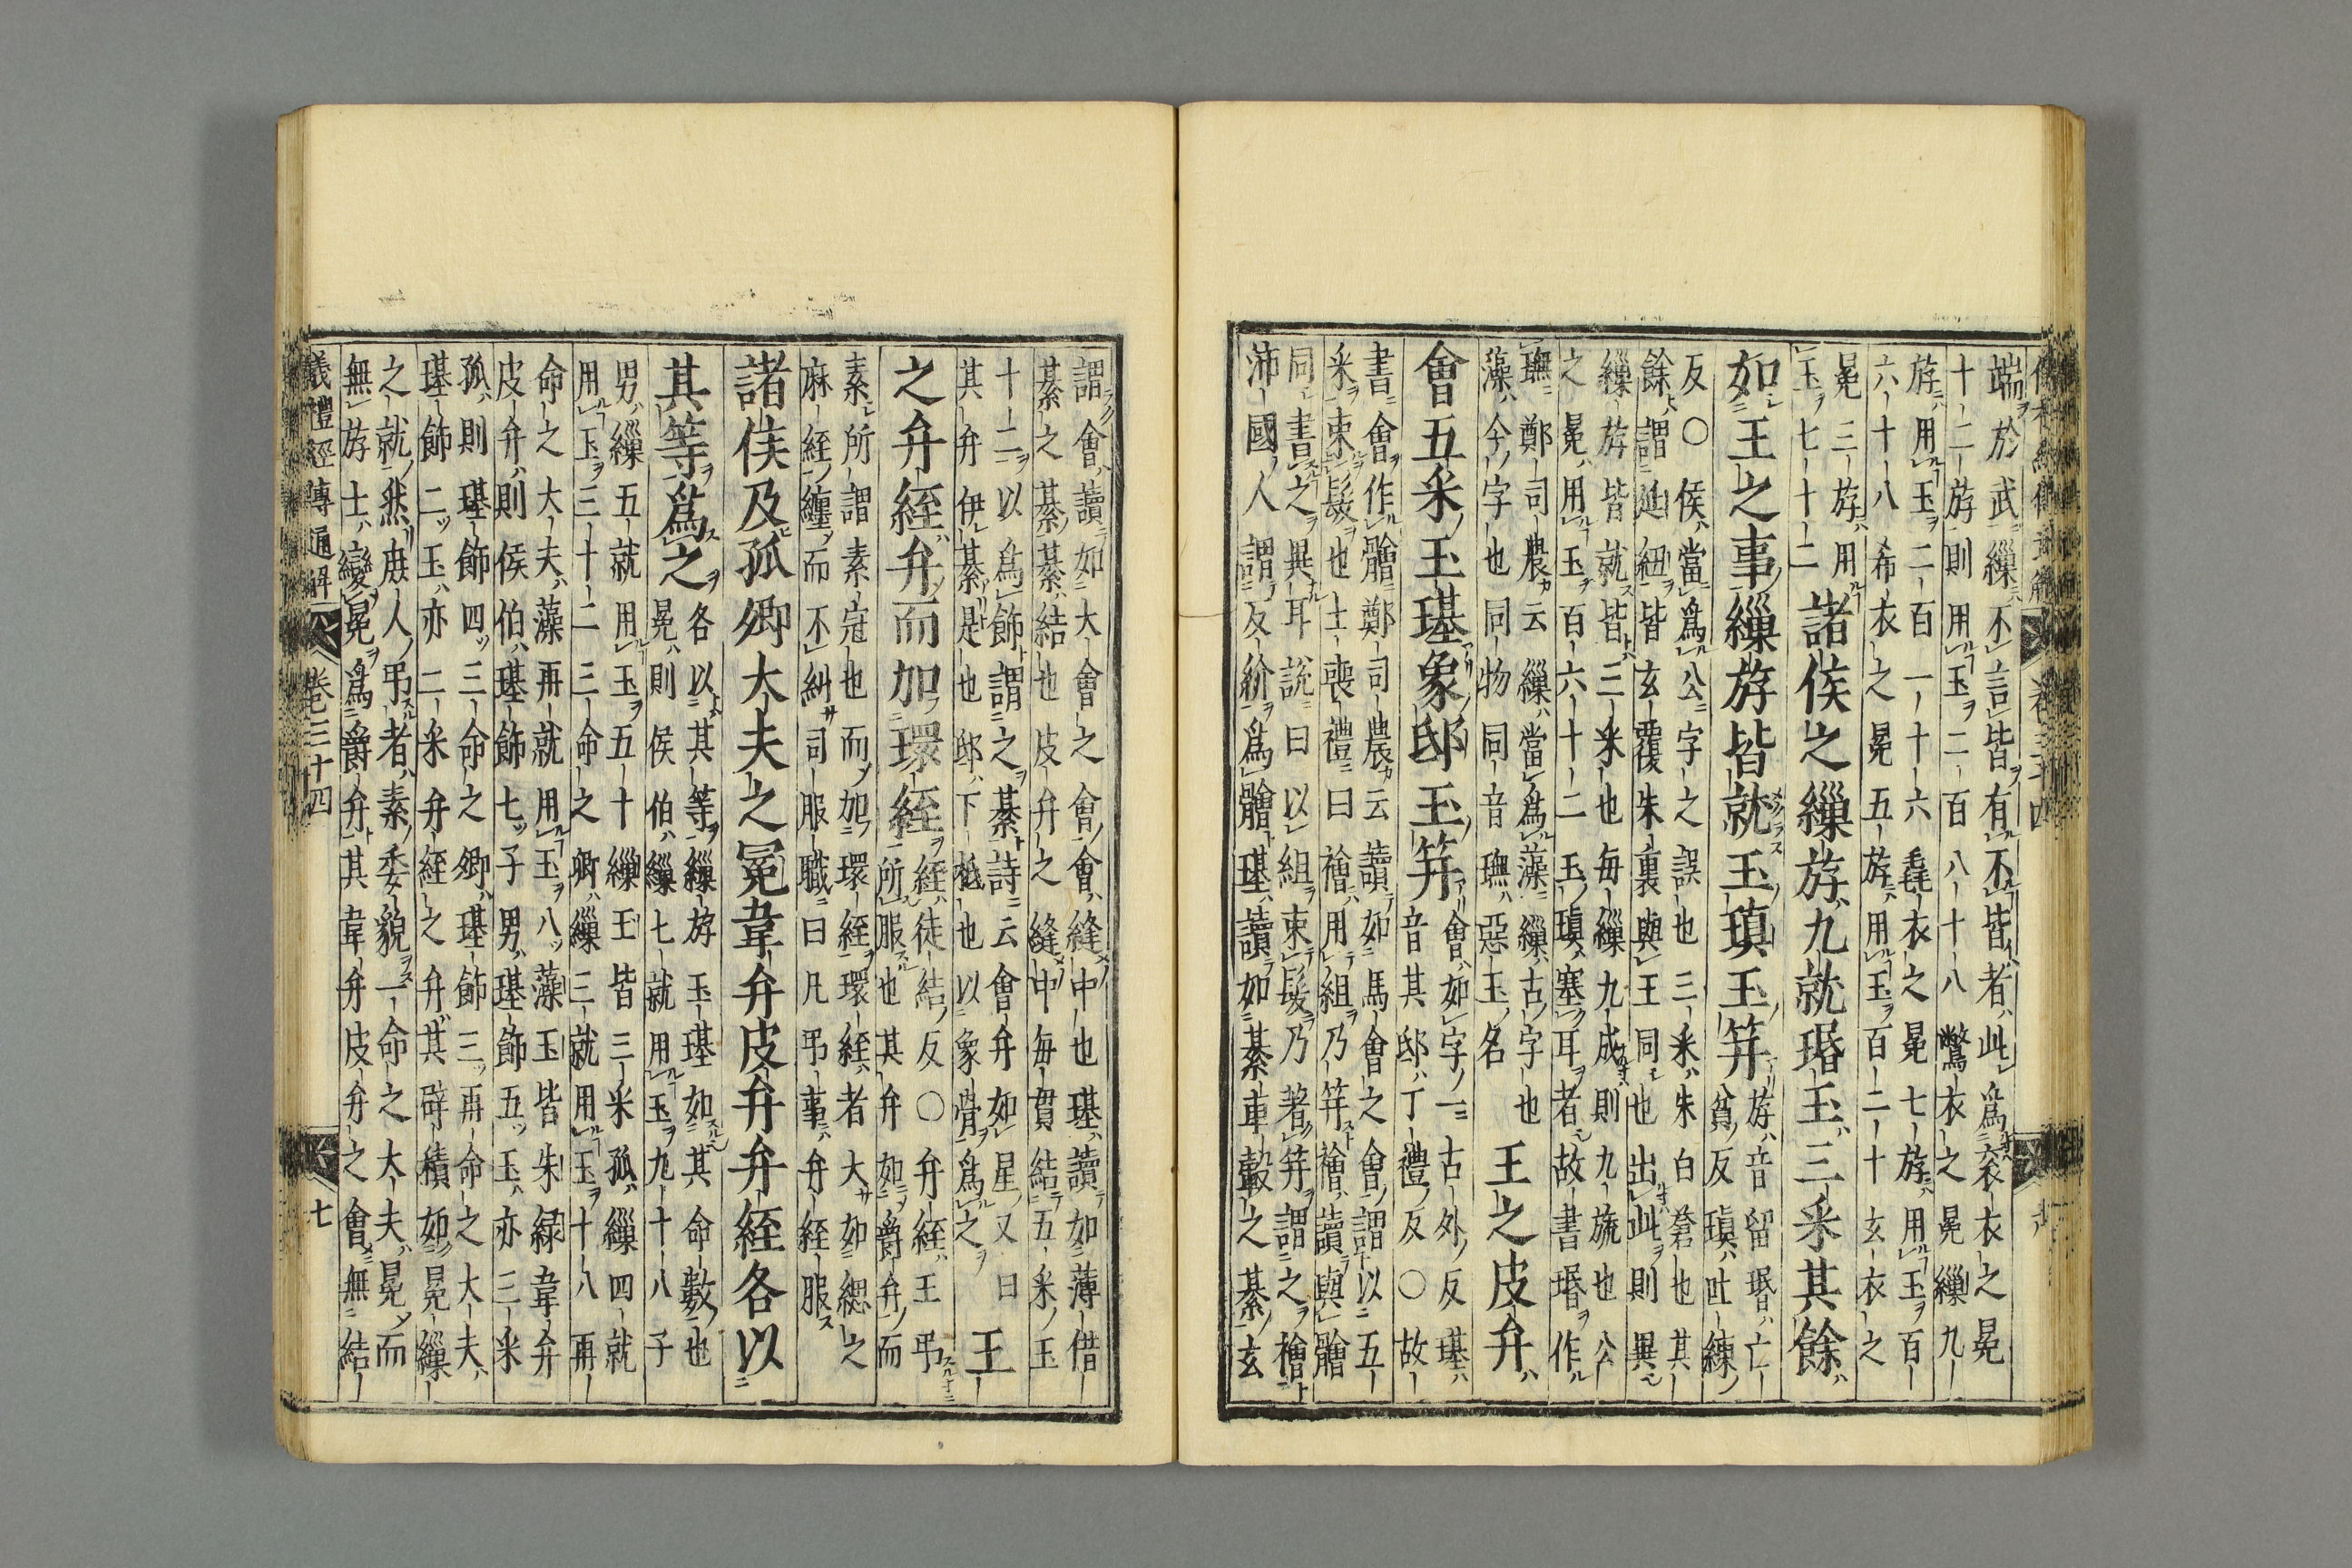 端於武繅不言皆有不皆者此爲袞衣之冕
十二斿則用玉二百八十八鷩衣之冕繅九
斿用玉二百一十六毳衣之冕七斿用玉百
六十八希衣之冕五斿用玉百二十玄衣之
冕三斿用
玉七十二
諸侯之繅斿九就瑉玉三采其餘
如王之事繅斿皆就玉瑱玉笄
斿音留瑉亡
貧反瑱吐練
反〇侯當爲公字之誤也三采朱白蒼也其
餘謂延紐皆玄覆朱裏與王同也出此則異
繅斿皆就皆三采也每繅九成則九旒也公
之冕用玉百六十二玉瑱塞耳者故書瑉作
璑鄭司農云繅當爲藻繅古字也
藻今字也同物同音璑惡玉名
王之皮弁
會五采玉璂象邸玉笄
會如字一古外反璂
音其邸丁禮反〇故
書會作䯤鄭司農云讀如馬會之會謂以五
采束髮也士喪禮曰檜用組乃笄檜讀與䯤
同書之異耳說曰以組束髮乃著笄謂之檜
沛國人謂反紒爲䯤璂讀如綦車轂之綦玄
謂會讀如大會之會會縫中也璂讀如薄借
綦之綦綦結也皮弁之縫中每貫結五采玉
十二以爲飾謂之綦詩云會弁如星又曰
其弁伊綦是也邸下柢也以象骨爲之
王
之弁絰弁而加環絰
絰徒結反〇弁絰王弔
所服也其弁如爵弁而
素所謂素冠也而加環絰環絰者大如緦之
麻絰纏而不糾司服職曰凡弔事弁絰服
諸侯及孤卿大夫之冕韋弁皮弁弁絰各以
其等爲之
各以其等繅斿玉璂如其命數也
冕則侯伯繅七就用玉九十八子
男繅五就用玉五十繅玉皆三采孤繅四就
用玉三十二三命之卿繅三就用玉十八再
命之大夫藻再就用玉八藻玉皆朱綠韋弁
皮弁則侯伯璂飾七子男璂飾五玉亦三采
孤則璂飾四三命之卿璂飾三再命之大夫
璂飾二玉亦二采弁絰之弁其辟積如冕繅
之就然庶人弔者素委貌一命之大夫冕而
無斿士變冕爲爵弁其韋弁皮弁之會無結
儀禮經傳通解 卷三十四 七